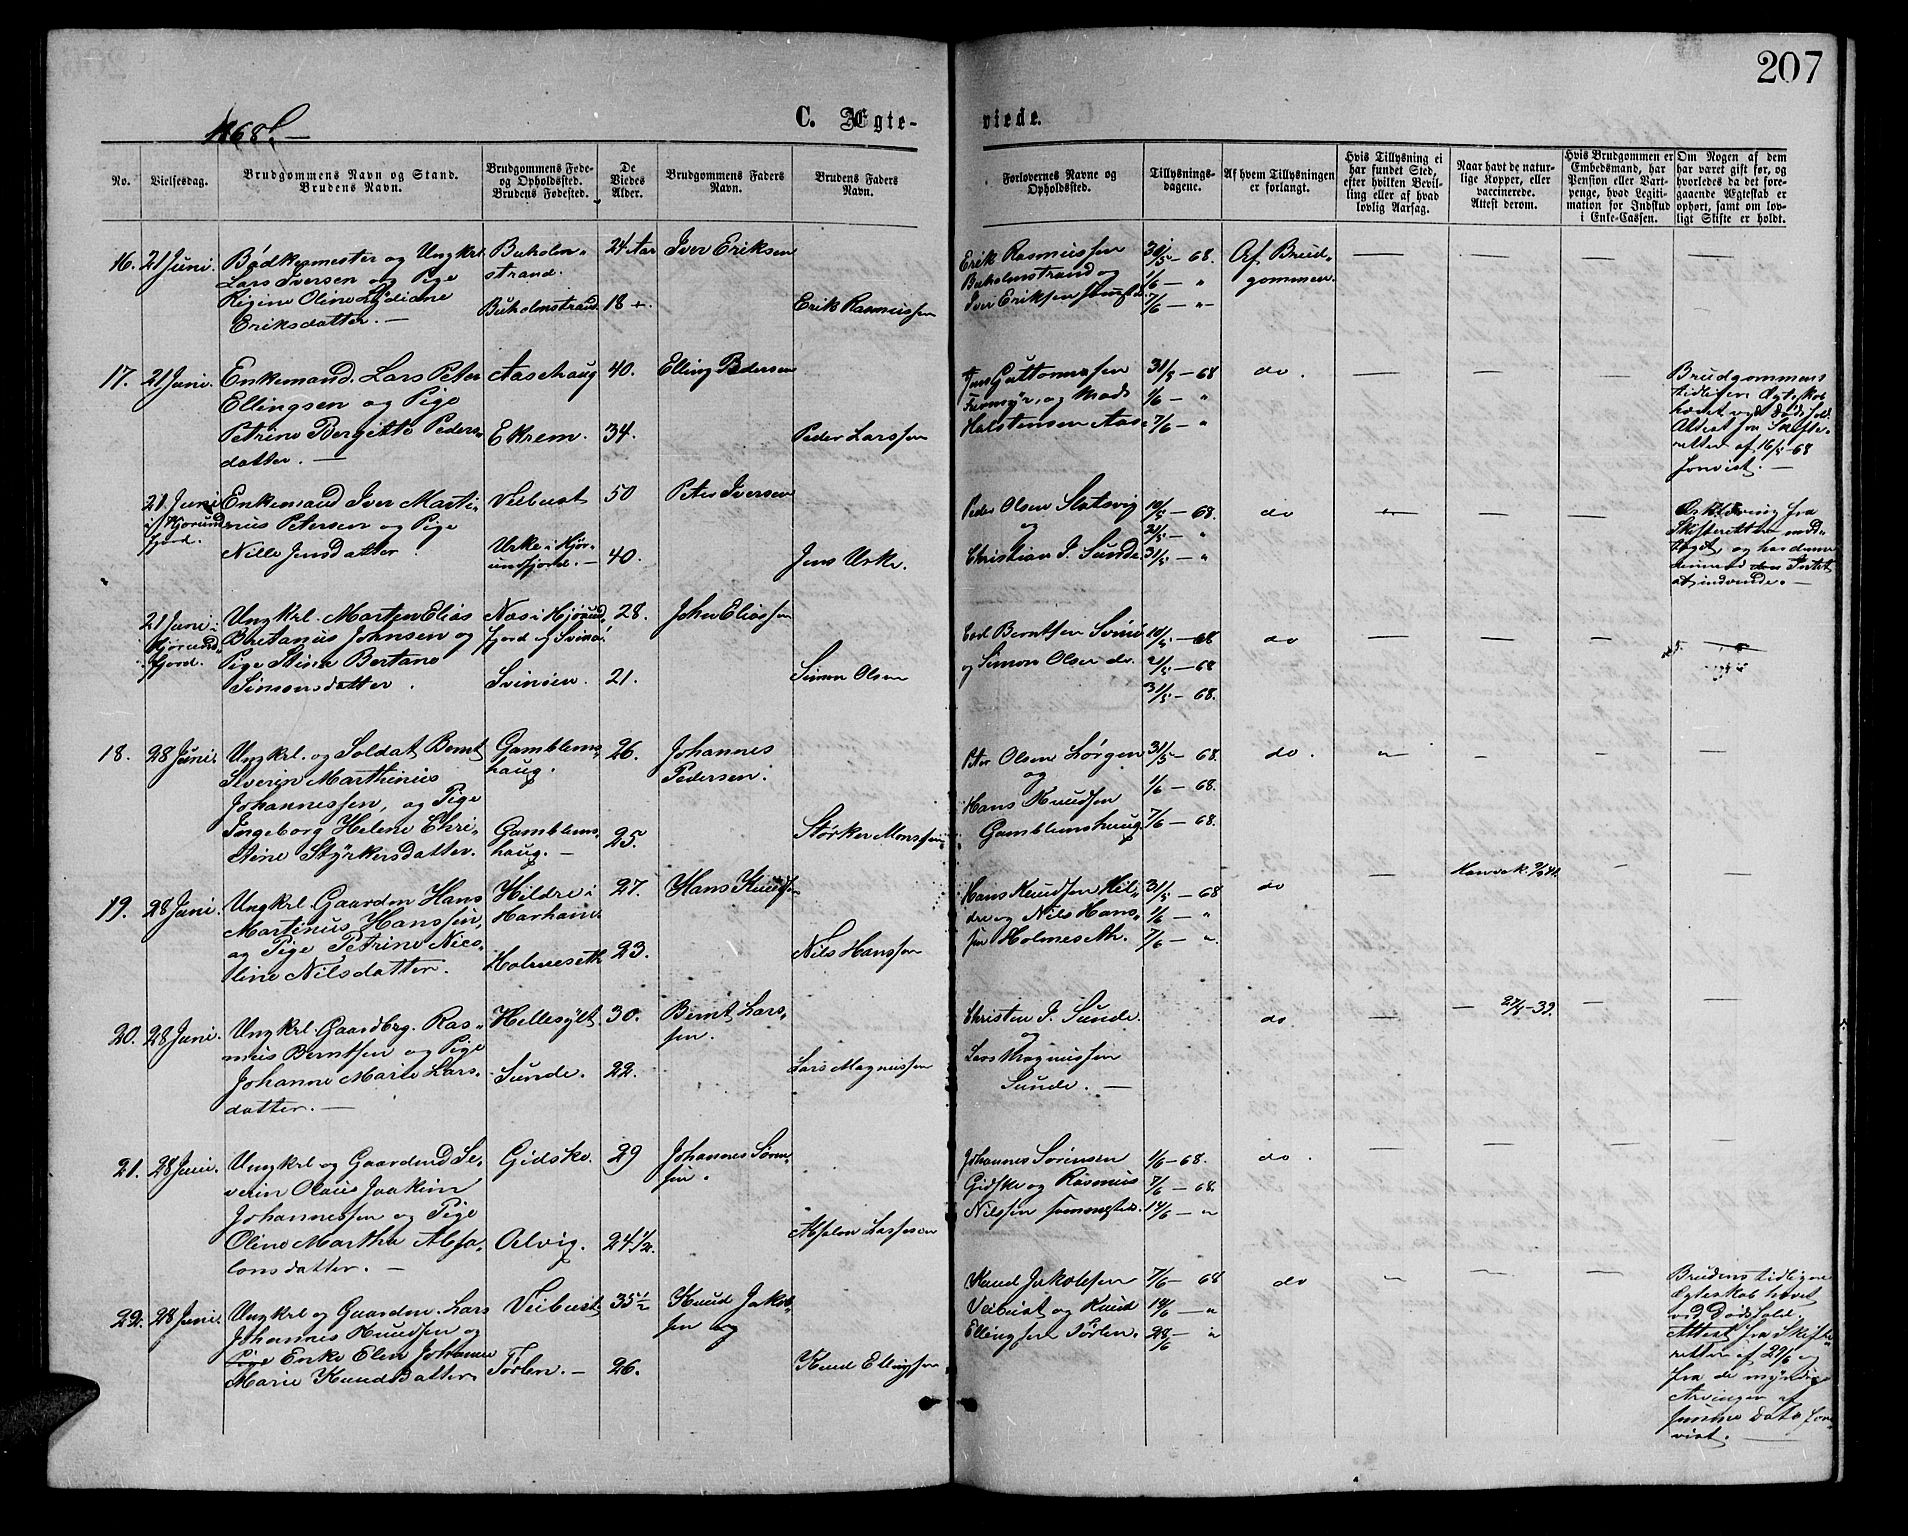 207
1868.
C. Ægte-
viede.
No.
Vielsesdag.
Brudgommens Navn og Stand.
Brudens Navn.
Brudgommens Føde-
og Opholdssted.
Brudens Fødested.
De
Viedes
Alder.
Brudgommens Faders
Navn.
Brudens Faders
Navn.
Forlovernes Navne og
Opholdssted.
Tillysnings-
dagene.
Af hvem Tillysningen
er forlangt.
Hvis Tillysning ei
har fundet Sted,
efter hvilken Bevil-
ling eller af hvad
lovlig Aarsag.
Naar havt de natur-
lige Kopper, eller
vaccinerede.
Attest derom.
Hvis Brudgommen er
Embedsmand, har
Pension eller Vart-
penge, hvad Legiti-
mation for Indskud
i Enke-Cassen.
Om Nogen af dem
har været gift før, og
hvorledes da det fore-
gaaende Ægteskab er
ophørt, samt om lov-
ligt Skifte er holdt.
16. 21 Juni.
Bødkermester og Ungkrl.
Lars Iversen og Pige
Regine Oline Lydiane
Eriksdatter. —
Buholm-
strand.
Buholmstrand
24 Aar
18 —
Iver Eriksen
Erik Rasmussen
Erik Rasmussen
Buholmstrand og
Iver Eriksen
30/5 — 68.
1/6 — "
7/6 — "
Af Brud-
gommen.
17. 21 Juni.
Enkemand Lars Peter
Ellingsen og Pige
Petrine Bergitte Peders-
datter. —
Aasehaug
Ekrem.
40.
34.
Elling Pedersen
Peder Larssen
Jens Guttormsen
og Mads
Halstensen Aas-
31/5 — 68
1/6 — "
7/6 — "
do.
Brudgommens
tidligere Ægteskab
hævet ved Dødsfald.
Attest fra Skifte-
retten af 16/5 68
forevist. —
21 Juni
i Hjørund-
fjord.
Enkemand Iver Marti-
nus Petersen og Pige
Nille Jensdatter.
Veibust
Urke i Hjør-
undfjord. —
50
40.
Peter Iversen
Jens Urke.
Peder Olsen Slatsvig
og
Christian J. Sunde
10/5 — 68.
21/5 — "
31/5 — "
do
fra
Skifteretten mod-
taget, og har denne
Intet
at indvende. —
21 Juni i
Hjørund-
fjord.
Ungkrl. Morten Elias
Bretanus Johnsen og
Pige Stine Bertane
Simonsdatter.
Næs i Hjørund-
fjord og Svinø.
Svinøen.
28.
21.
John Eliassen
Simon Olsen
Carl Berntsen Svinø
og Simon Olsen do.
10/5 — 68
21/5 — 68
31/5 — 68.
do
18. 28 Juni.
Ungkrl. og Soldat Bernt
Severin Marthinus
Johannessen, og Pige
Ingeborg Helene Chri-
stine Styrkersdatter.
Gamblems-
haug.
Gamblems-
haug. —
26.
25.
Johannes
Pedersen.
Størker Monssen
Peter Olsen Lørgen
og
Hans Knudsen
Gamblemshaug.
31/5 — 68.
1/6 — 68.
7/6 — 68.
do.
19. 28 Juni.
Ungkrl. Gaardm Hans
Martinus Hanssen
og Pige Petrine Nico-
line Nilsdatter.
Hildre i
Harham.
Holmeseth
27.
23.
Hans Knudsen
Nils Hanssen
Hans Knudsen Hil-
dre og Nils Hans-
sen Holmeseth.
31/5 — 68
1/6 — "
7/6 — "
do
20. 28 Juni.
Ungkrl. Gaardbrg. Ras-
mus Berntsen og Pige
Johanne Marie Lars-
datter. —
Hellesylt
Sunde.
30.
22.
Bernt Lars-
sen.
Lars Magnussen
Christen J. Sunde.
og
Lars Magnussen
Sunde. —
do.
21. 28 Juni.
Ungkrl og Gaardmd Se-
verin Olaus Joakim
Johannessen og Pige
Oline Martha Absa-
lonsdatter. —
Gidske.
Alvig.
29
24 1/2.
Johannes Søren-
sen.
Absalon Lassesen
Johannes Sørensen
Gidske og Rasmus
Nilssen
1/6 — 68.
7/6 — 68.
14/6 — "
do.
22. 28 Juni.
Ungkrl og Gaardm. Lars
Johannes Knudsen og
Pige Enke Elen Johanne
Marie Knudsdatter.
Veibust
Tørlen. —
35 1/2
26.
Knud Jakob-
sen
Knud Ellingsen
Knud Jakobsen
Veibust og Knud
Ellingsen Tørlen.
7/6 — 68
14/6 — "
28/6 — "
do
Brudens tidligere
Ægteskab hævet
ved Dødsfald.
Attest fra Skifte-
retten af 29/6 og
fra de myndige
Arvinger af
samme Dato fore-
vist. —